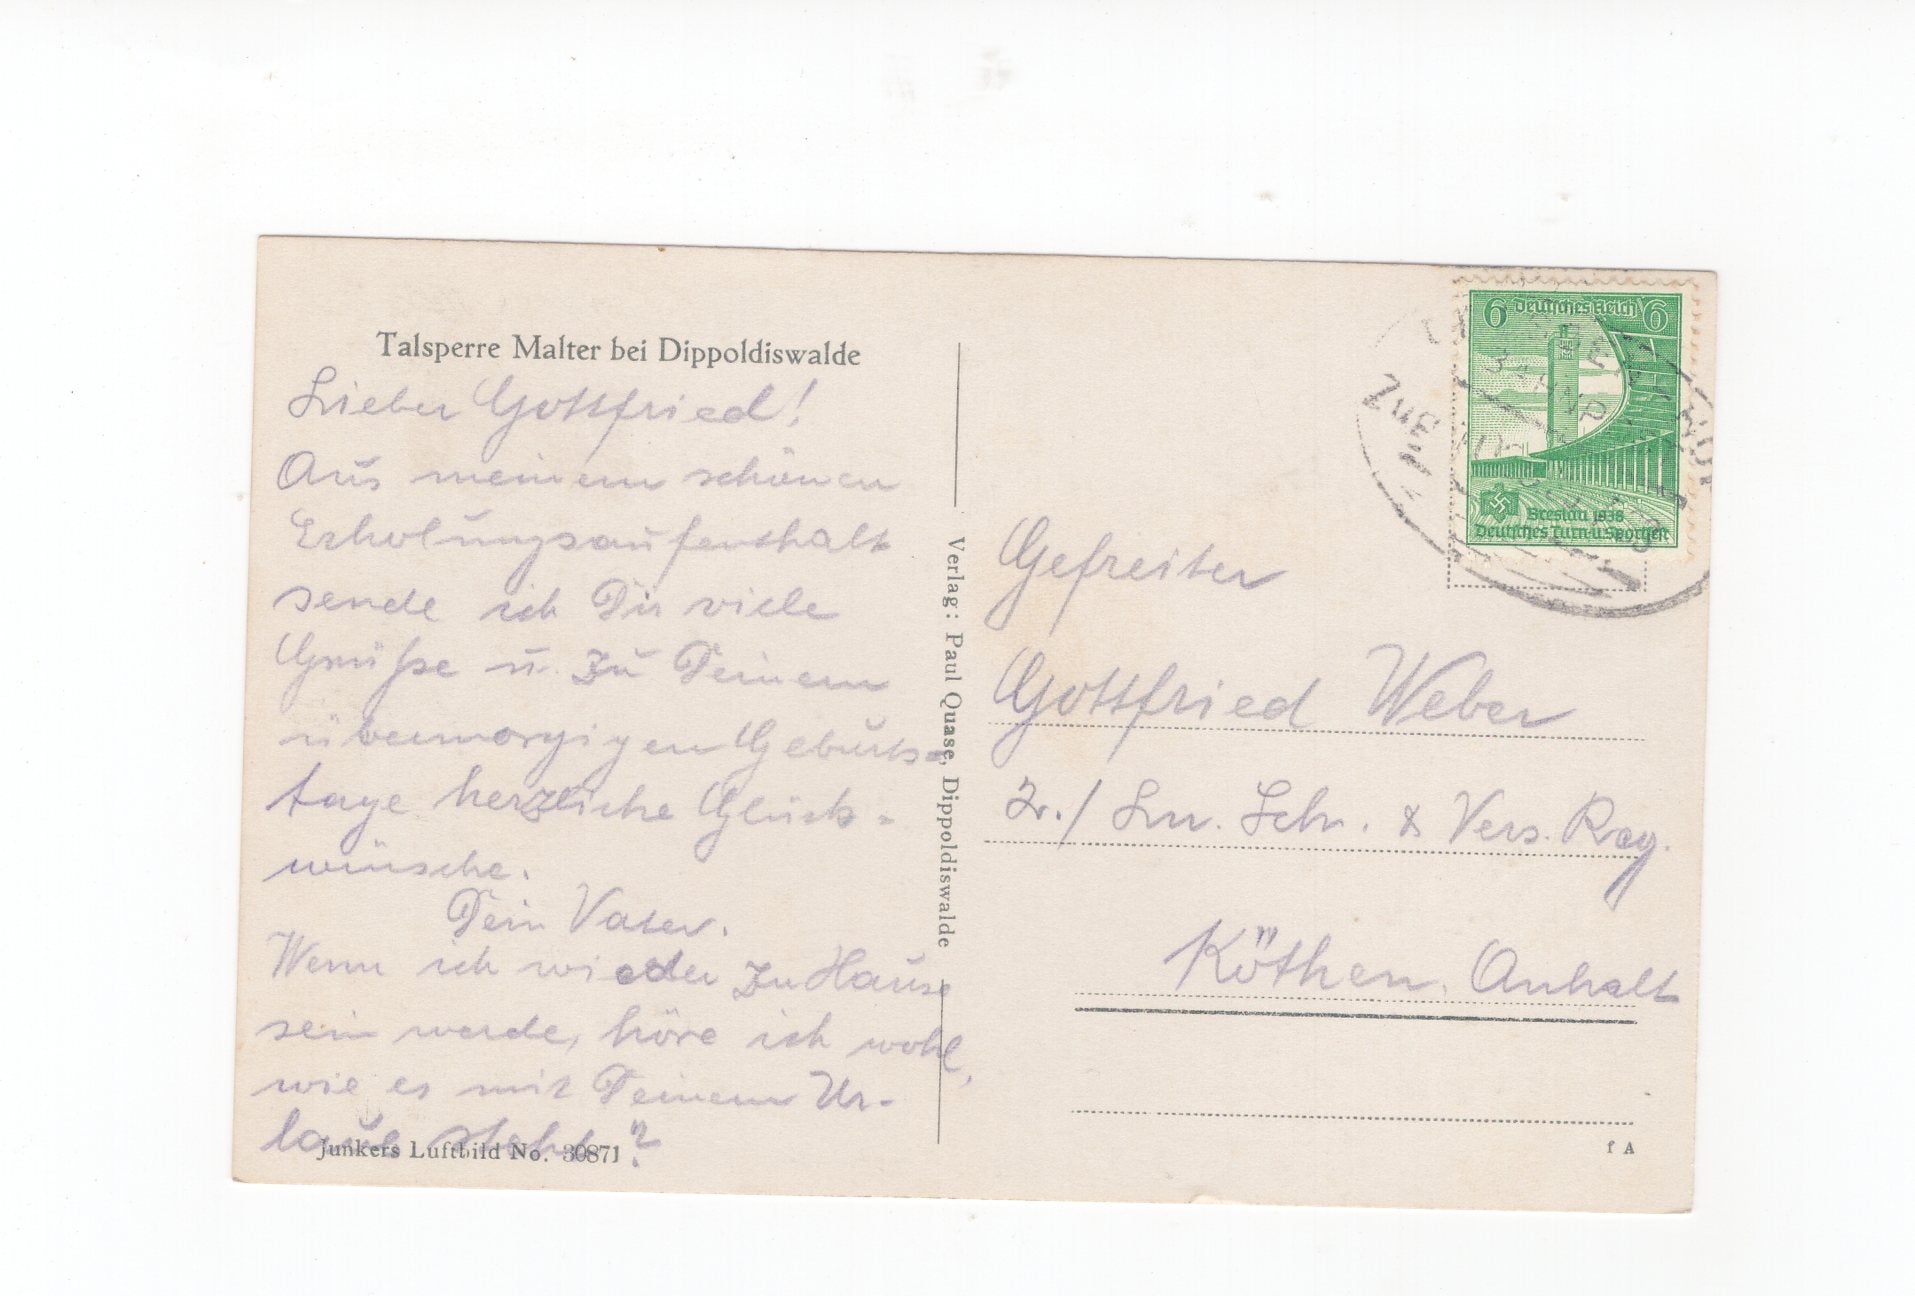 Talsperre Malter bei Dippoldiswalde
Lieber Gottfried!
Aus meinem schönen
Erholungsaufenthalt
sende ich Dir viele
Grüße u. zu Deinem
übermorgigen Geburts-
tage herzliche Glück-
wünsche.
Dein Vater.
Wenn ich wieder zu Hause
sein werde, höre ich wohl,
wie es mit Deinem Ur-
laub steht?
Junkers Luftbild No. 30871
Verlag: Paul Quase, Dippoldiswalde
6 Deutsches Reich 6
Breslau 1938
Deutsches Turn-u.Sportfest
BAHNPOST
ZUG
Gefreiter
Gottfried Weber
Ln. Leh. & Vers. Reg.
Köthen, Anhalt
f A